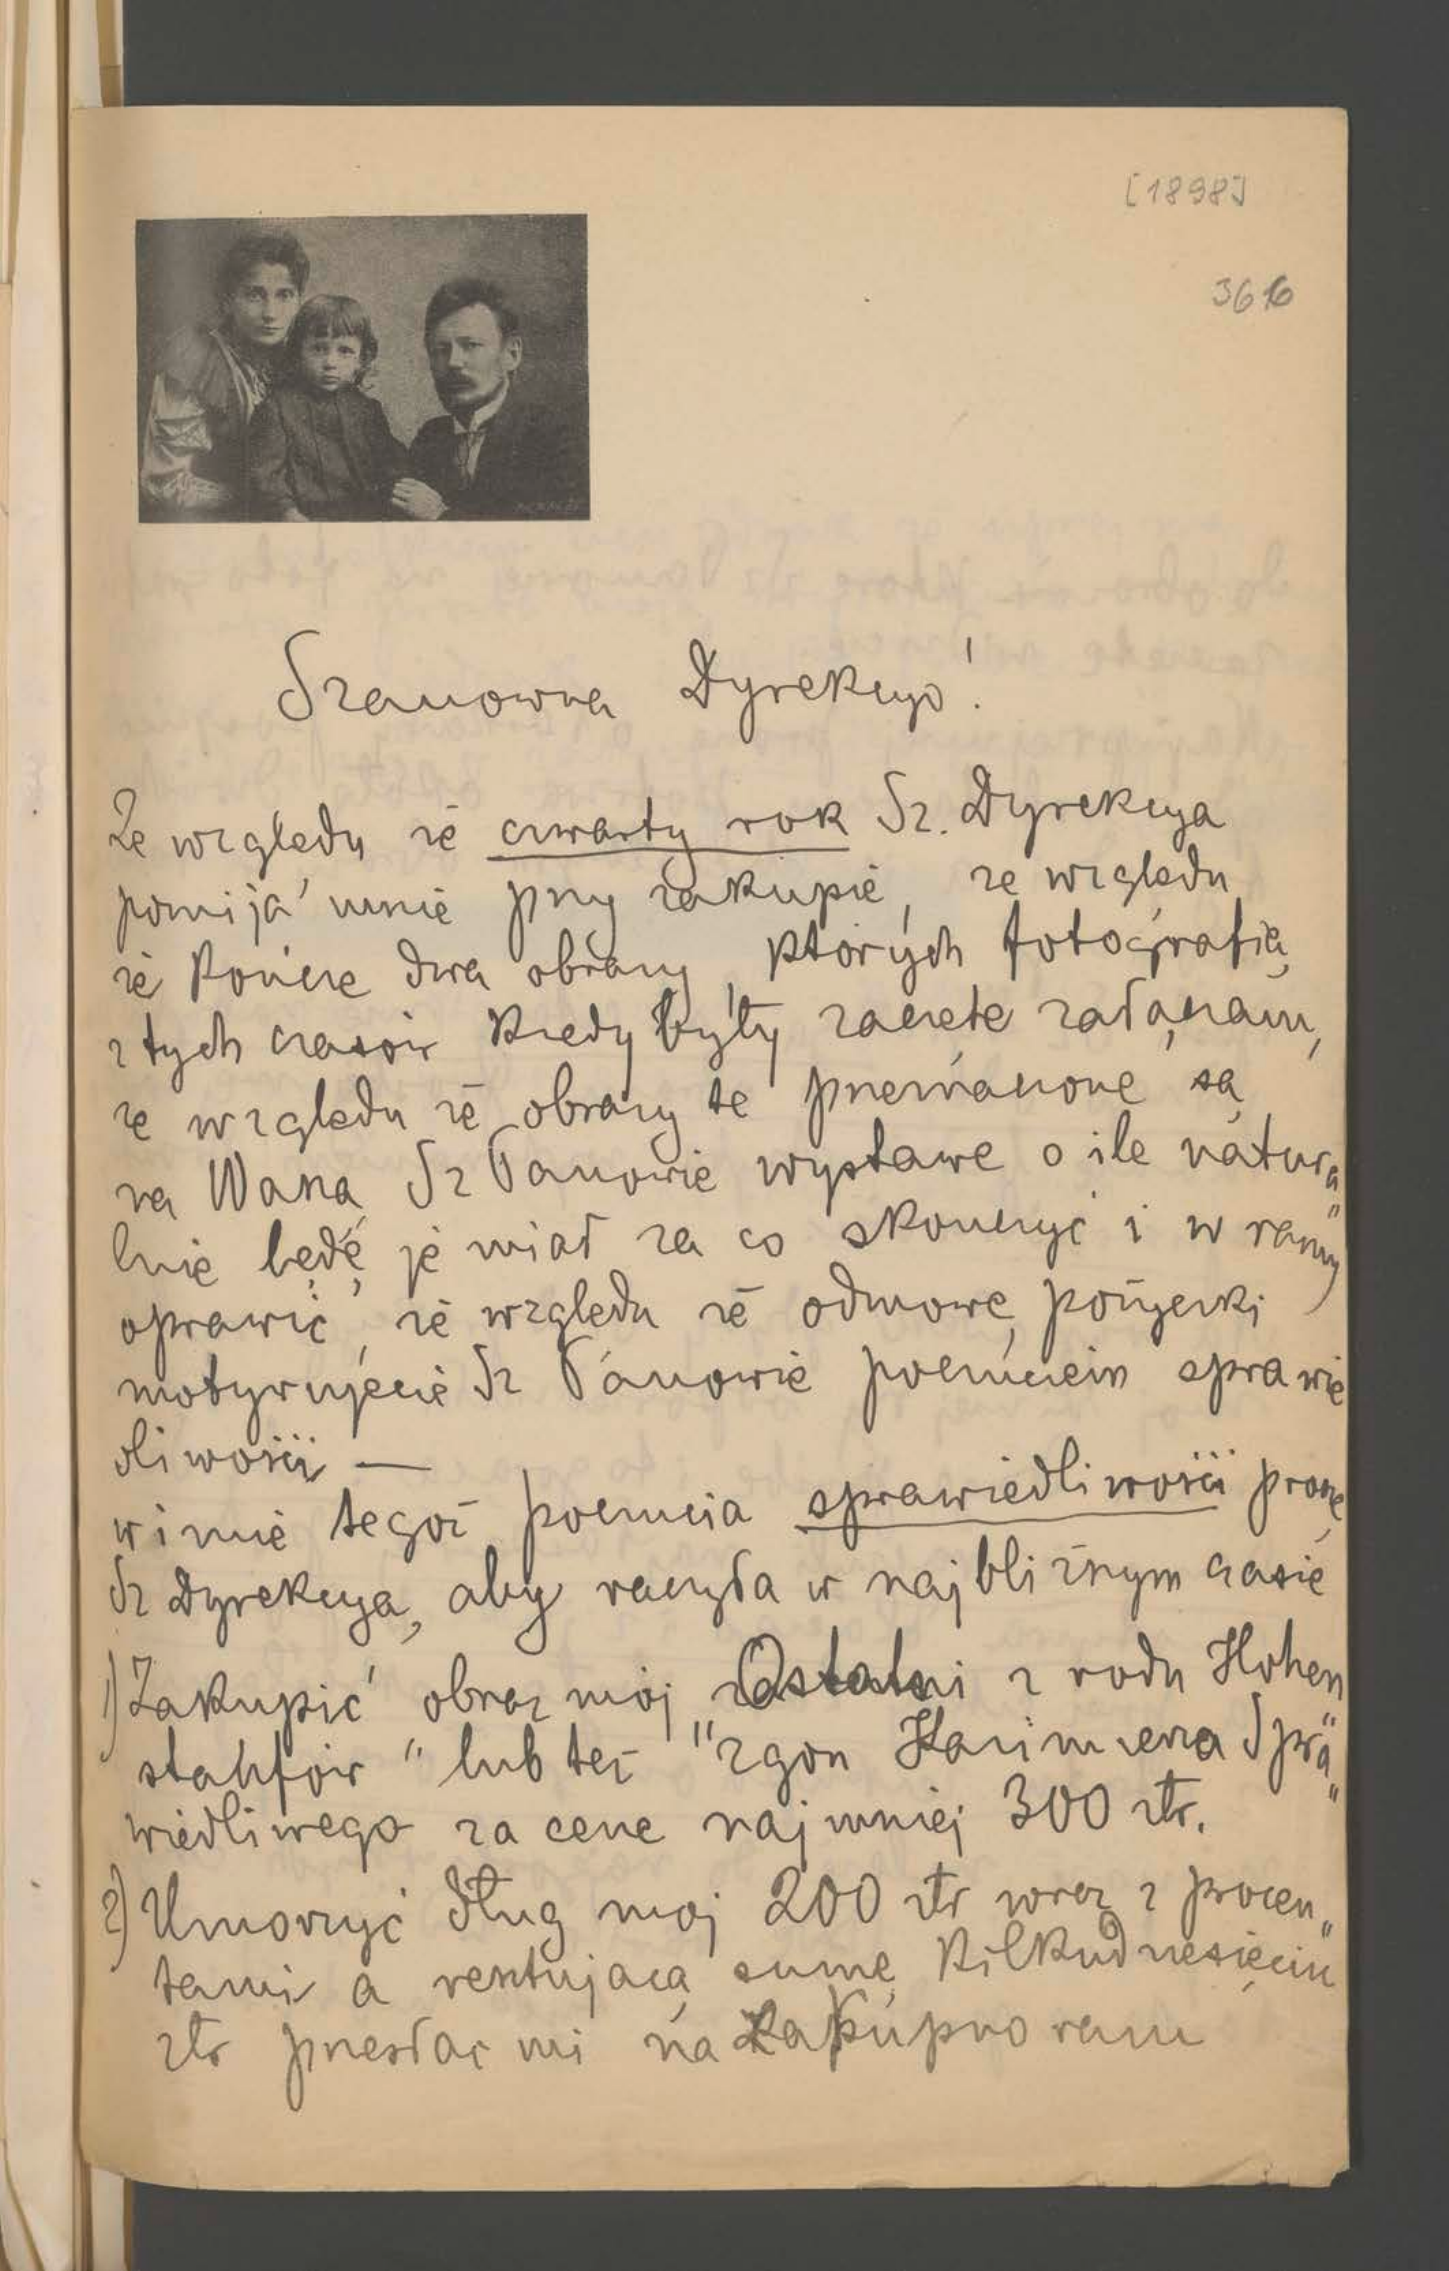 [1898]
366
Szanowna Dyrekcyo!
Ze względu że czwarty rok Sz. Dyrekcya
pomija mnie przy zakupie, ze względu
że kończę dwa obrazy, których fotografię
z tych czasów kiedy były zaczęte załączam,
ze względu że obrazy te przeznaczone są
na Waszą Sz Panowie wystawę o ile natura„
lnie będę je miał za co skończyć i w ramy
oprawić, że względu że odmowę pożyczki
motywujecie Sz Panowie poczuciem sprawie
dliwości —
w imię tegoż poczucia sprawiedliwości proszę
Sz Dyrekcyą, aby raczyła w najbliższym czasie
1) Zakupić obraz mój „Ostatni z rodu Hohen
staufów" lub też "zgon Kazimierza Spra„
wiedliwego za cenę najmniej 300 złr.
2) Umorzyć dług mój 200 złr wraz z procen„
tami a resztującą sumę kilkudziesięciu
złr przesłać mi na zakupno ram